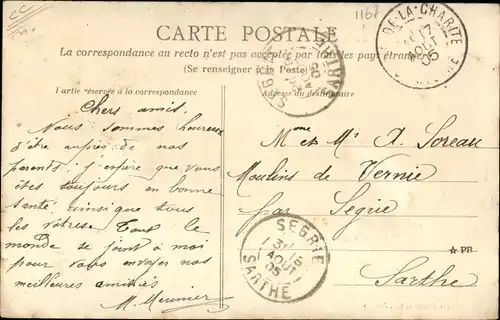 CC
1167
CARTE POSTALE
La correspondance au recto n'est pas acceptée par tous les pays étrangers
(Se renseigner à la Poste)
Partie réservée à la correspondance
Adresse du destinataire
DE-LA-CHARITÉ
17
AOUT
05
SEGRIE
AOUT
05
SARTHE
Chers amis.
Nous sommes heureux
d'être auprès de nos
parents j'espère que vous
êtes toujours en bonne
santé ainsi que tous
les vôtres Tout le
monde se joint à moi
pour vous envoyer nos
meilleures amitiés
M. Meunier
Mme et Mr A. Soreau
Moulins de Vernie
par Segrie
★ PR
Sarthe
SEGRIE
AOUT
05
SARTHE